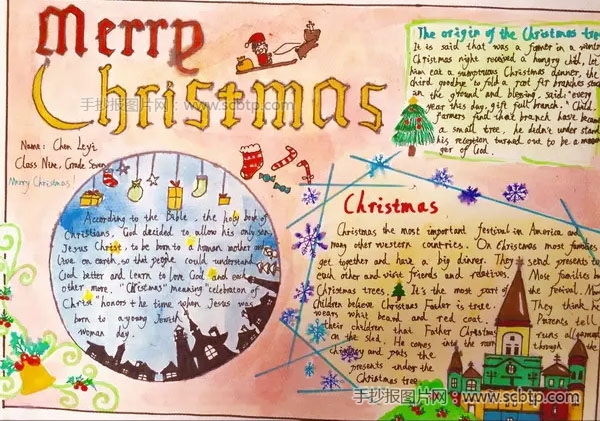 Merry
Christmas
手抄报图片网:www.scbtp.com
Name: Chen Leyi
Class Nine, Grade Seven
Merry Christmas
According to the Bible, the holy book of
Christians, God decided to allow his only son,
Jesus Christ, to be born to a human mother and
live on earth, so that people could understand
God better and learn to love God and each
other more. "Christmas" meaning "celebration of
Christ" honors the time when Jesus was
born to a young Jewish
woman day.
The origin of the Christmas tree
It is said that was a farmer in a
Christmas night received a hungry child, let
him eat a sumptuous Christmas dinner, the
child goodbye to fold a root fir branches
in the ground and blessing said: "every
year this day, gift full branch."
farmers find that branch have become
a small tree, he didn't understand
his reception turned out to be a
ger of God.
Christmas
Christmas the most important festival in America and
many other western countries. On Christmas most families
get together and have a big dinner. They send presents to
each other and visit friends and relatives. Most families
Christmas trees. It's the most part of the festival.
Children believe Christmas Father is true. They think he
wears whit beard and red coat. Parents tell
their children that Father Christmas runs
on the sled. He comes into the room through the
chimney and puts the
presents under the
Christmas tree.
手抄报图片网:www.scbtp.com